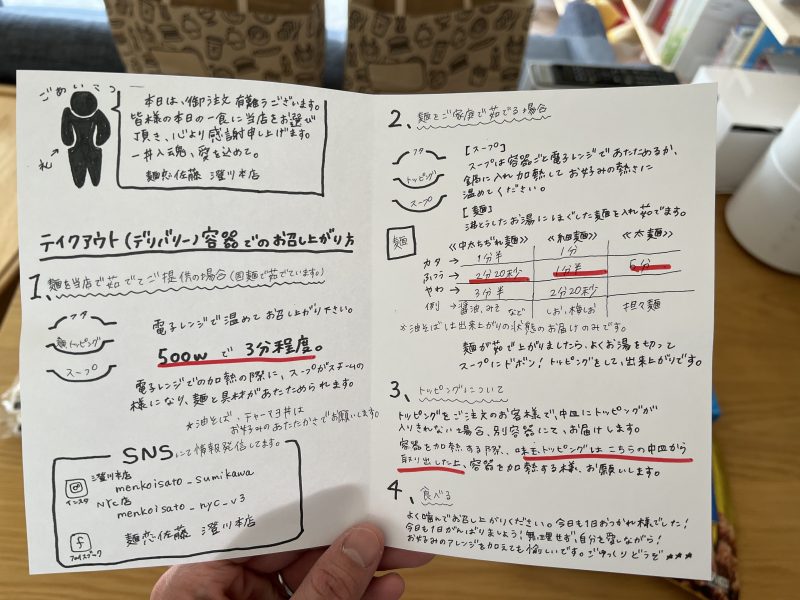 ごあいさつ
本日は、御注文有難うございます。
皆様の本日の一食に当店をお選び
頂き、心より感謝申し上げます。
一丼入魂、愛を込めて。
麺恋佐藤 澄川本店
礼
テイクアウト(デリバリー)容器でのお召し上がり方
1、麺を当店で茹でてご提供の場合(固麺で茹でています。)
フタ
麺トッピング
スープ
電子レンジで温めてお召し上がり下さい。
500wで3分程度。
電子レンジでの加熱の際に、スープがスチームの
様になり、麺と具材があたためられます。
※油そば、チャーマヨ丼は
お好みのあたたかさでお願いします。
SNSにて情報発信してます。
澄川本店
menkoisato_sumikawa
インスタ
NYC店
menkoisato_nyc_v3
麺恋佐藤 澄川本店
フェイスブック
2、麺をご家庭で茹でる場合
フタ
トッピング
スープ
[スープ]
スープは容器ごと電子レンジであたためるか、
鍋に入れ加熱してお好みの熱さに
温めてください。
[麺]
沸とうしたお湯にほぐした麺を入れ茹でます。
麺
《中太ちぢれ麺》 《細麺》 《太麺》
カタ→ 1分半 1分
ふつう→ 2分20秒 1分半 6分
やわ→ 3分半 2分20秒
例 醤油、みそなど しお、梅しお 担々麺
※油そばは出来上がりの状態のお届けのみです。
麺が茹で上がりましたら、よくお湯を切って
スープにドボン!トッピングをして、出来上がりです。
3、トッピングについて
トッピングをご注文のお客様で、中皿にトッピングが
入りきれない場合、別容器にて、お届けします。
容器を加熱する際、味玉トッピングはこちらの中皿から
取り出した上、容器を加熱する様、お願いします。
4、食べる
よく噛んでお召し上がりください。今日も1日おつかれ様でした!
今日も1日がんばりましょう!無理せず、自分を愛しながら!
お好みのアレンジを加えても愉しいです。ごゆっくりどうぞ★★★